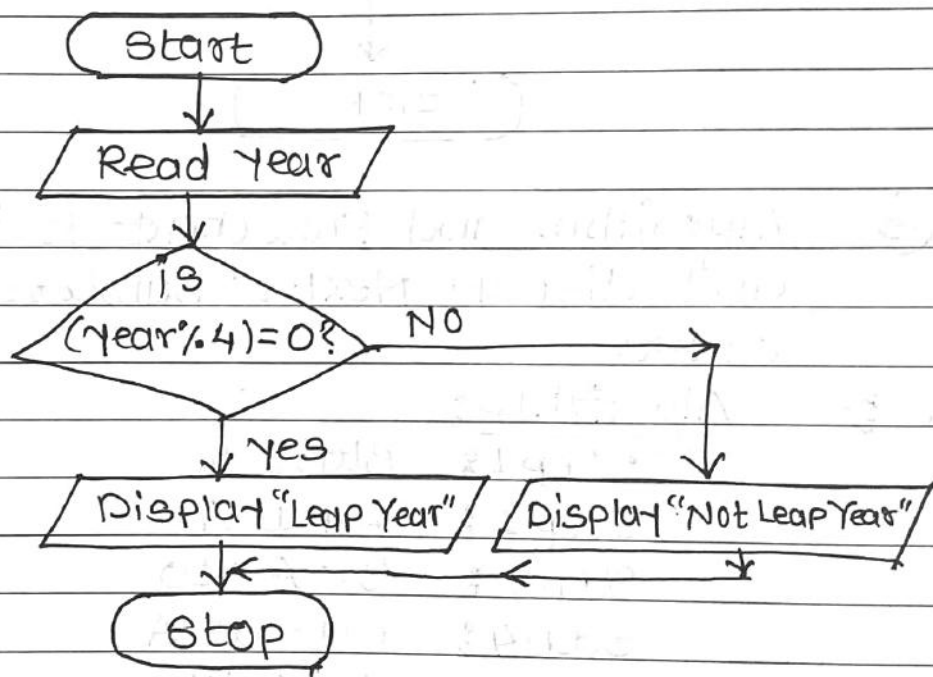 Start
Read Year
is
(year%.4)=0?
NO
Yes
Display "Leap Year"
Display "Not Leap Year"
Stop